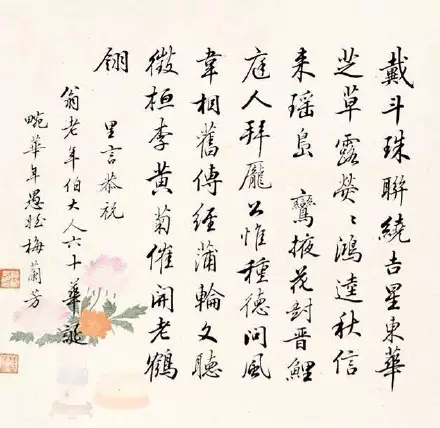 戴斗珠聯繞吉星東華
芝草露熒〻鴻達秋信
來瑤島鸞掖花封晉鯉
庭人拜龐公惟種德問風
韋相舊傳經蒲輪又聽
徵桓李黃菊催開老鶴
翎 里言恭祝
翁老年伯大人六十華誕
畹華年愚姪梅蘭芳